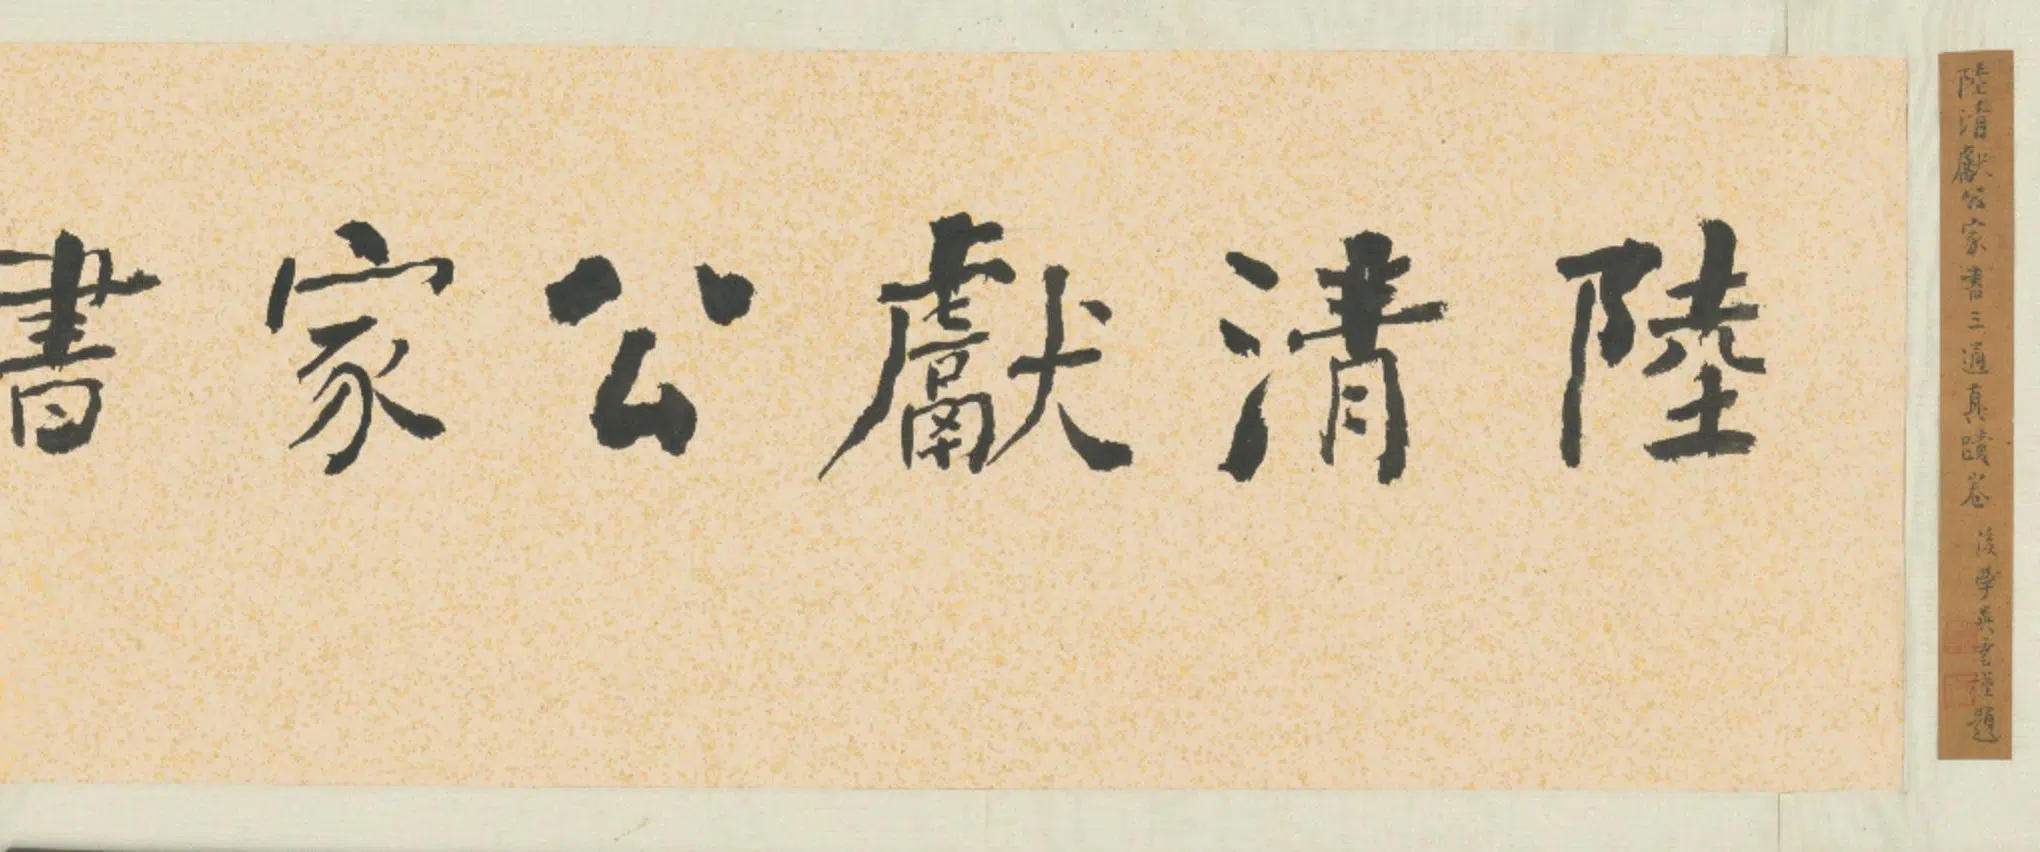 陸清獻公家書三通真蹟卷
後學吳雲謹題
陸清獻公家書